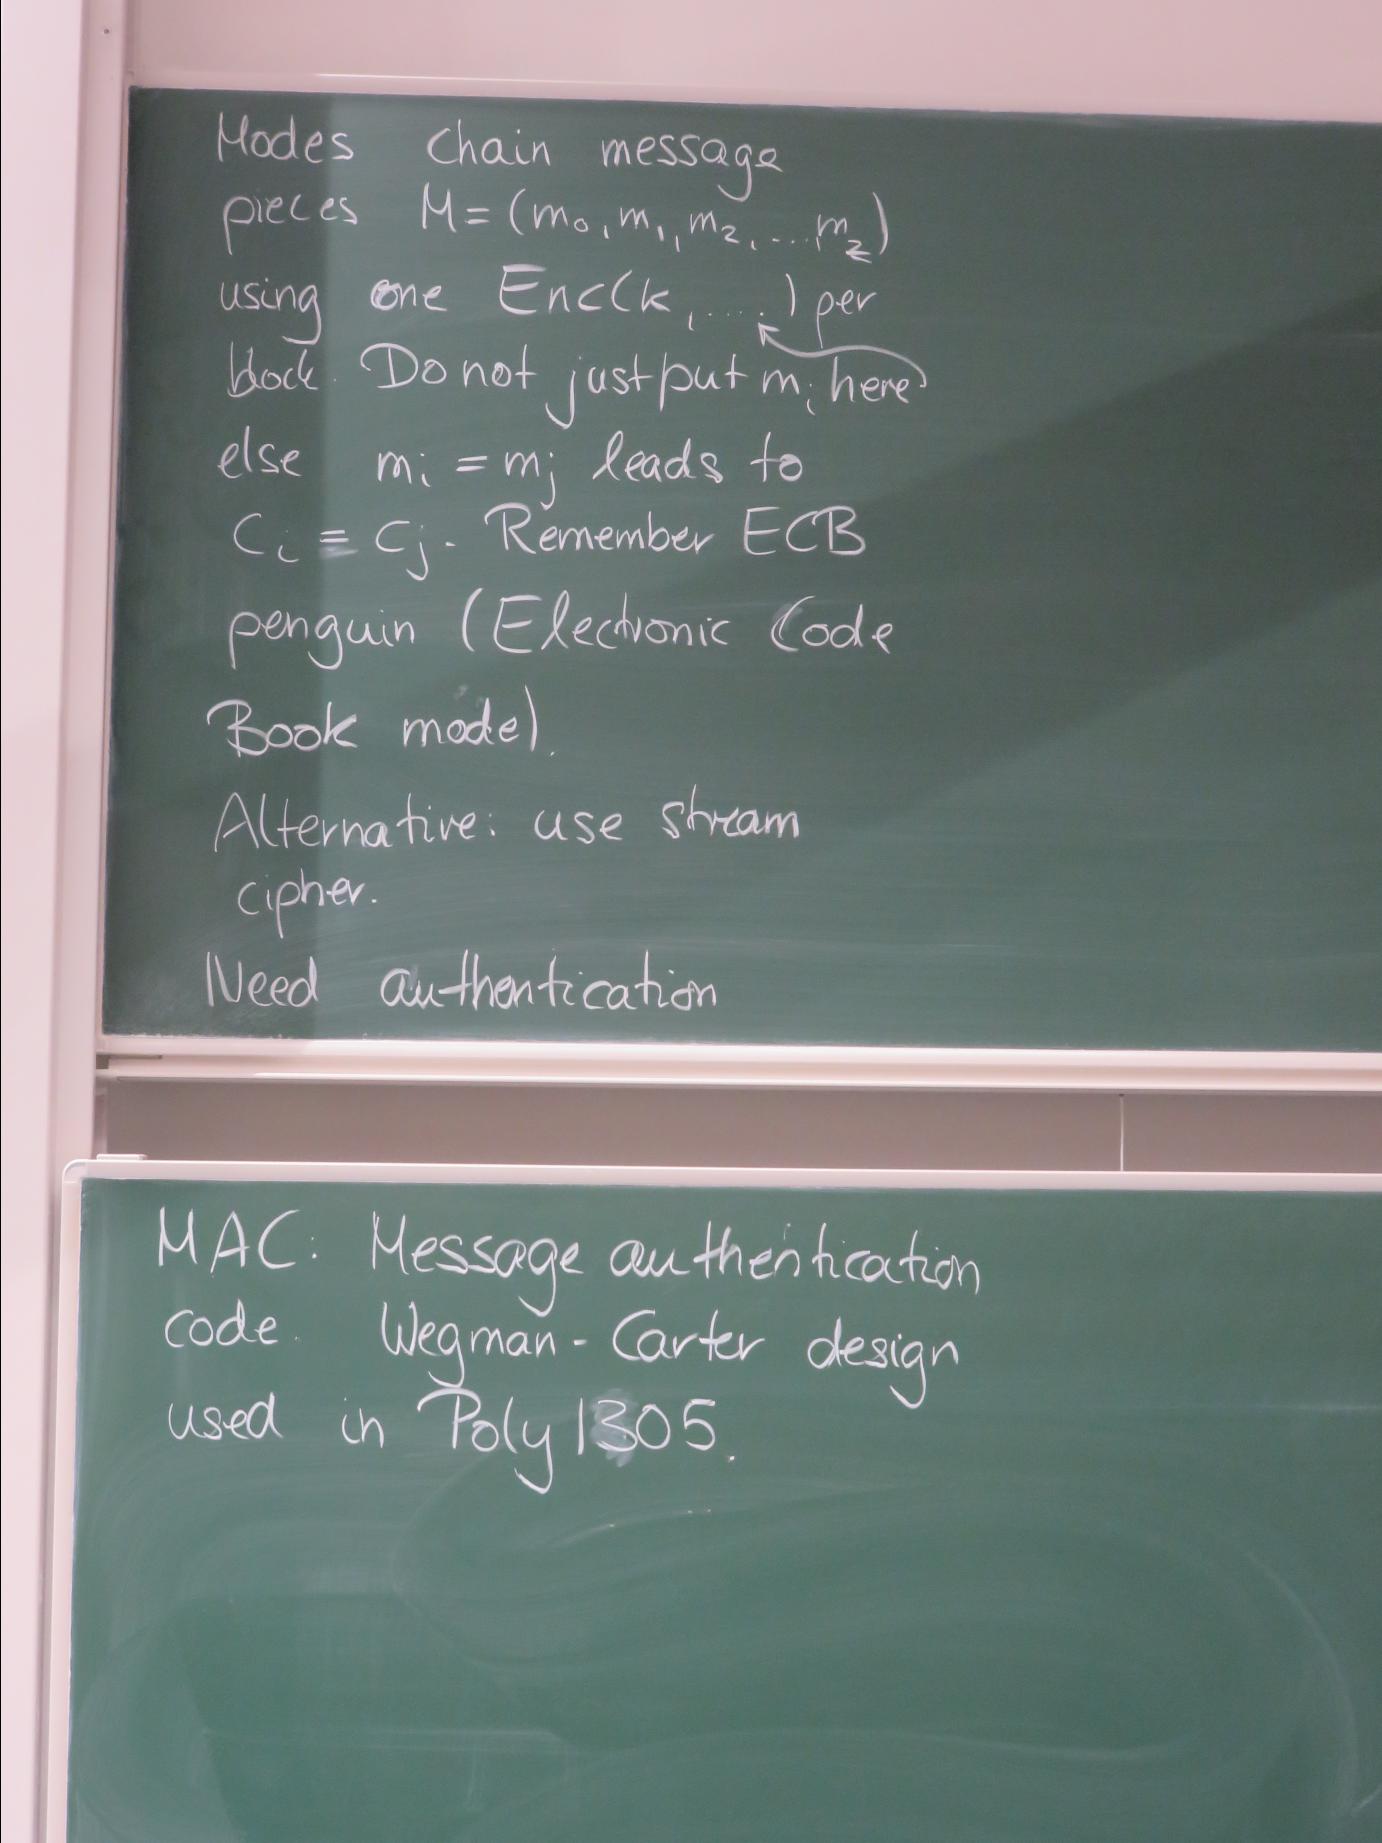 Modes chain message
pieces M=(m₀,m₁,m₂,...m_z)
using one Enc(k,....) per
block. Do not just put mᵢ here
else mᵢ = mⱼ leads to
Cᵢ = Cⱼ. Remember ECB
penguin (Electronic Code
Book mode).
Alternative: use stream
cipher.
Need authentication
MAC: Message authentication
code. Wegman-Carter design
used in Poly1305.